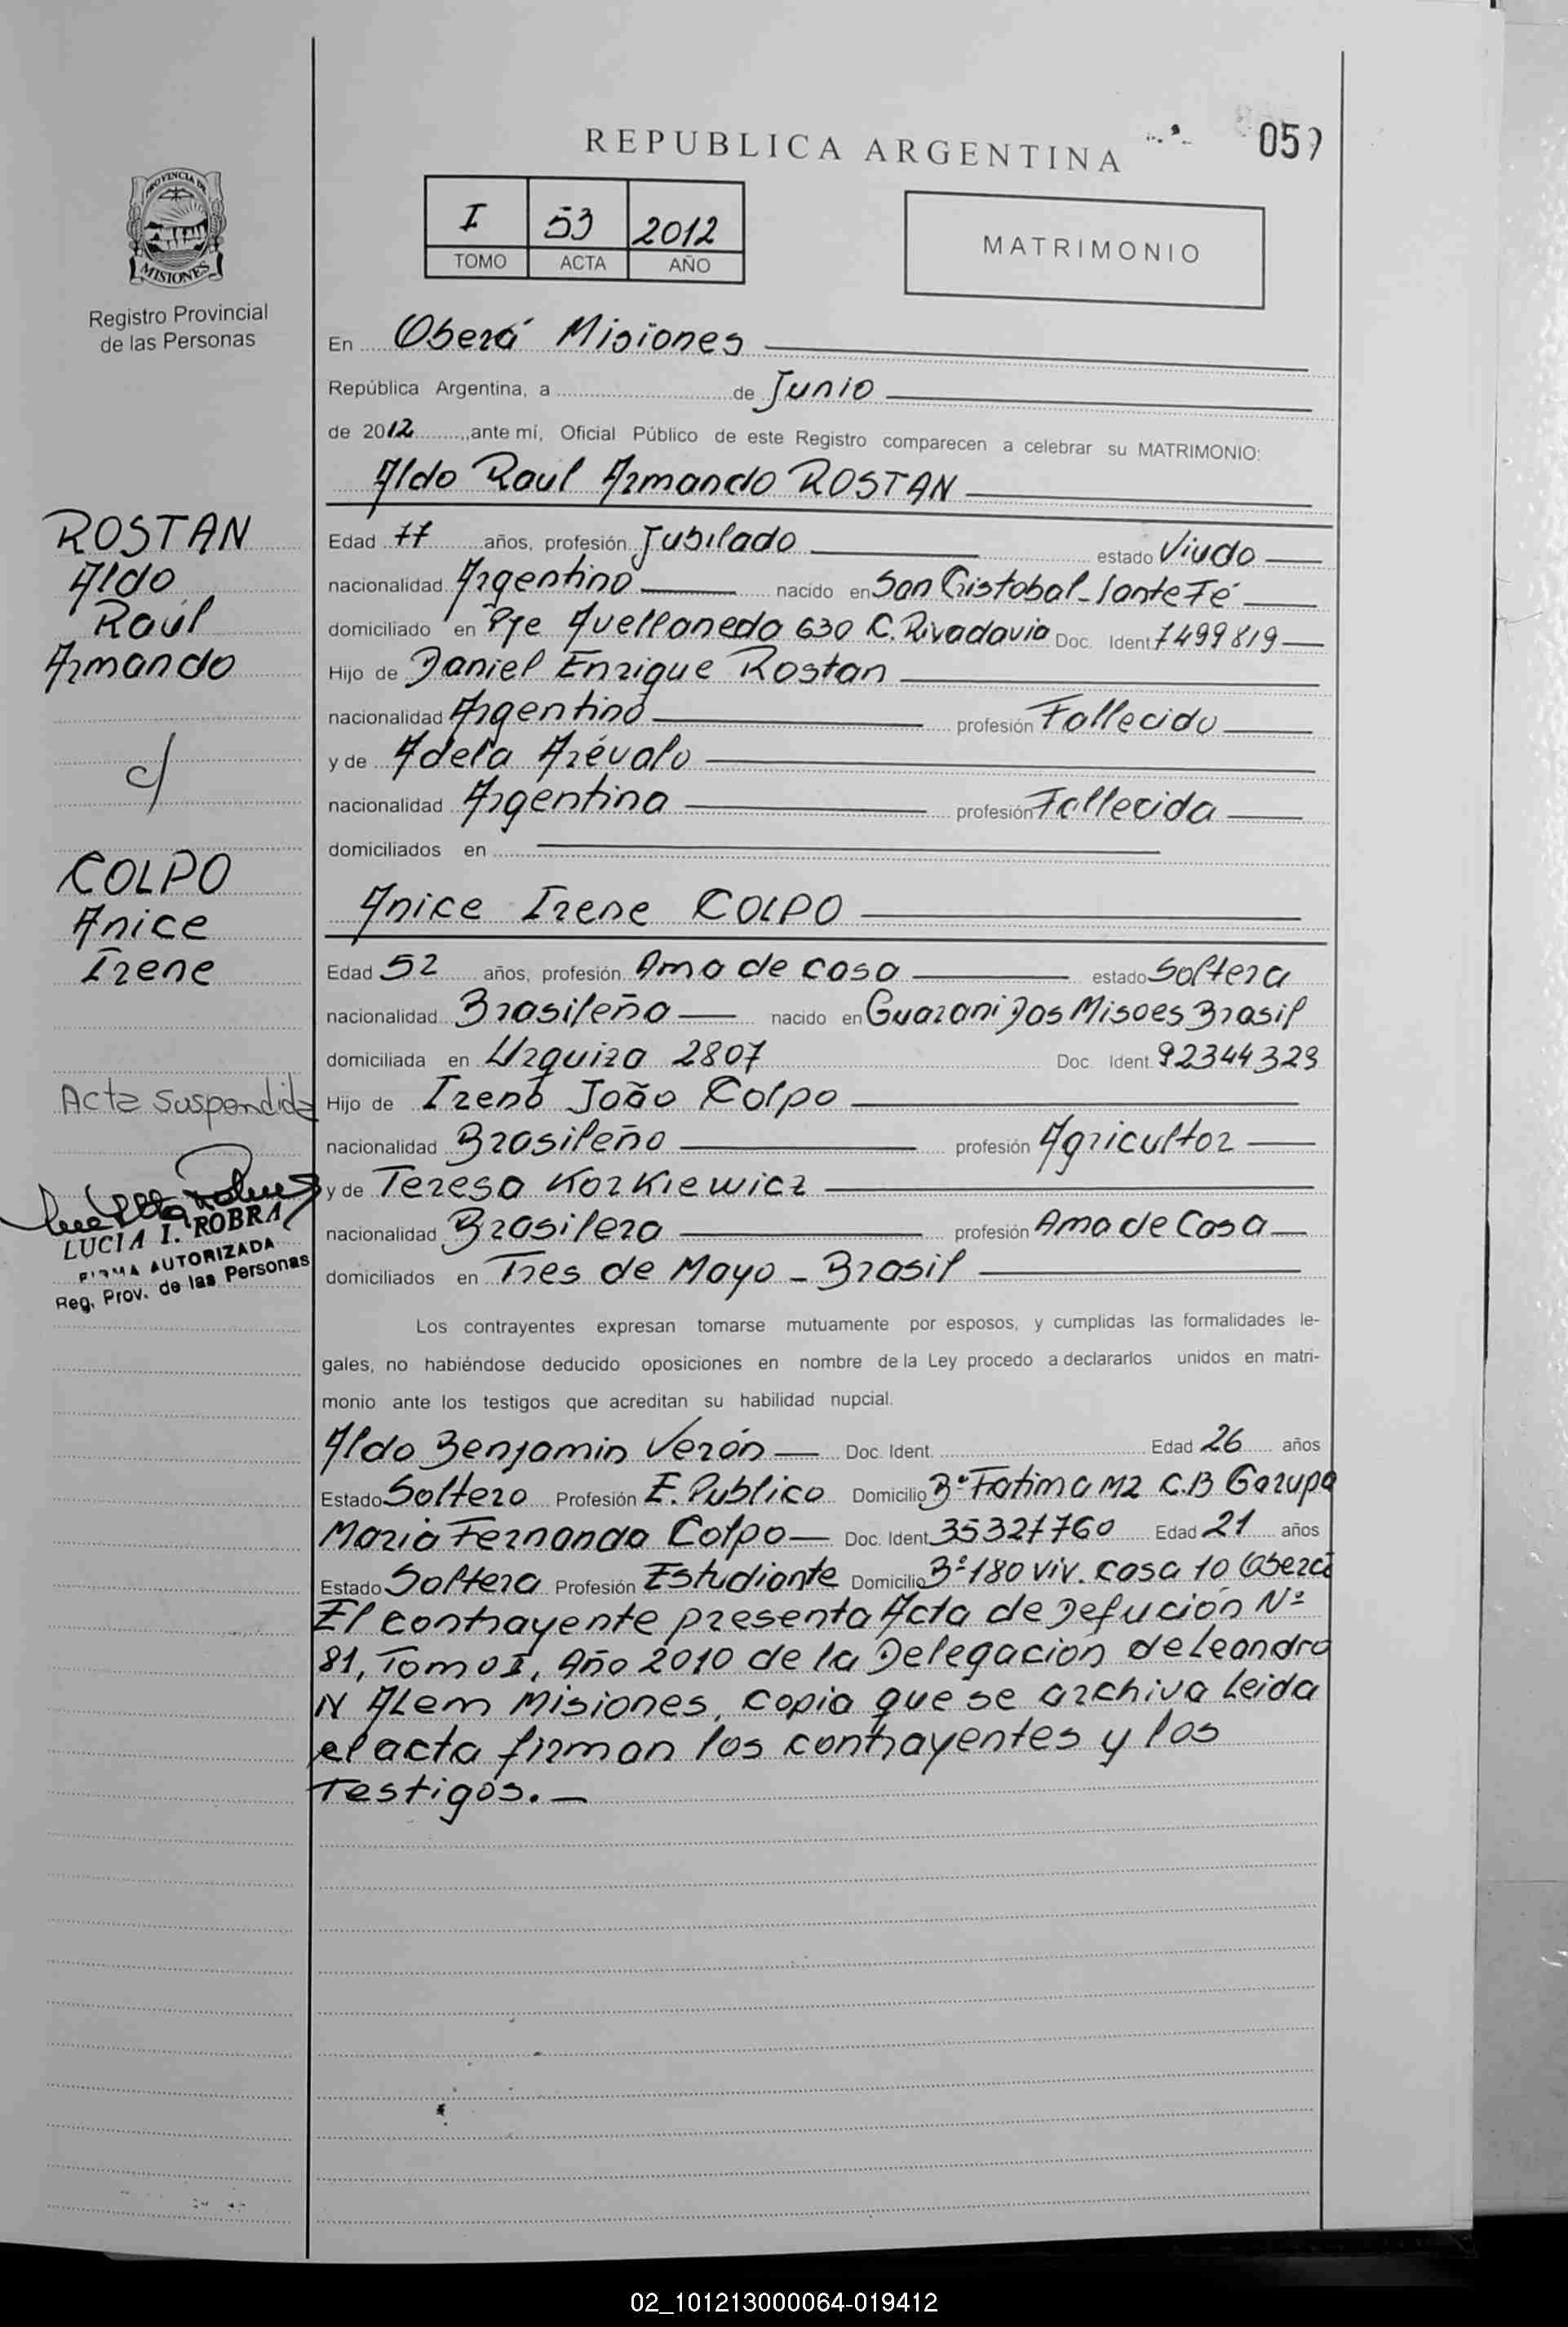 REPUBLICA ARGENTINA
PROVINCIA DE
MISIONES
Registro Provincial
de las Personas
I 53 2012
TOMO ACTA AÑO
MATRIMONIO
En Oberá Misiones
República Argentina, a de Junio
de 2012, ante mí, Oficial Público de este Registro comparecen a celebrar su MATRIMONIO:
Aldo Raul Armando ROSTAN
ROSTAN
Aldo
Raúl
Armando
c/
COLPO
Anice
Irene
Acta Suspendida
LUCIA I. ROBRA
FIRMA AUTORIZADA
Reg. Prov. de las Personas
Edad 77 años, profesión Jubilado estado Viudo
nacionalidad Argentino nacido en San Cristobal - Sante Fé
domiciliado en Pje Avellaneda 630 C. Rivadavia Doc. Ident 7499819
Hijo de Daniel Enrique Rostan
nacionalidad Argentino profesión Fallecido
y de Adela Arévalo
nacionalidad Argentina profesión Fallecida
domiciliados en
Anice Irene COLPO
Edad 52 años, profesión Ama de casa estado Soltera
nacionalidad Brasileña nacido en Guarani Dos Misoes Brasil
domiciliada en Urquiza 2807 Doc. Ident 92344323
Hijo de Ireno João Colpo
nacionalidad Brasileño profesión Agricultor
y de Teresa Korkiewicz
nacionalidad Brasilera profesión Ama de Casa
domiciliados en Tres de Mayo - Brasil
Los contrayentes expresan tomarse mutuamente por esposos, y cumplidas las formalidades le-
gales, no habiéndose deducido oposiciones en nombre de la Ley procedo a declararlos unidos en matri-
monio ante los testigos que acreditan su habilidad nupcial.
Aldo Benjamin Verón Doc. Ident. Edad 26 años
Estado Soltero Profesión E. Publico Domicilio Bº Fatima M2 C.B Garupa
Maria Fernanda Colpo Doc. Ident 35327760 Edad 21 años
Estado Soltera Profesión Estudiante Domicilio Bº 180 viv. casa 10 Oberá
El contrayente presenta Acta de Defución Nº
81, Tomo I, Año 2010 de la Delegación de Leandro
N ALem Misiones, copia que se archiva Leida
el acta firman los contrayentes y los
Testigos.-
02_101213000064-019412